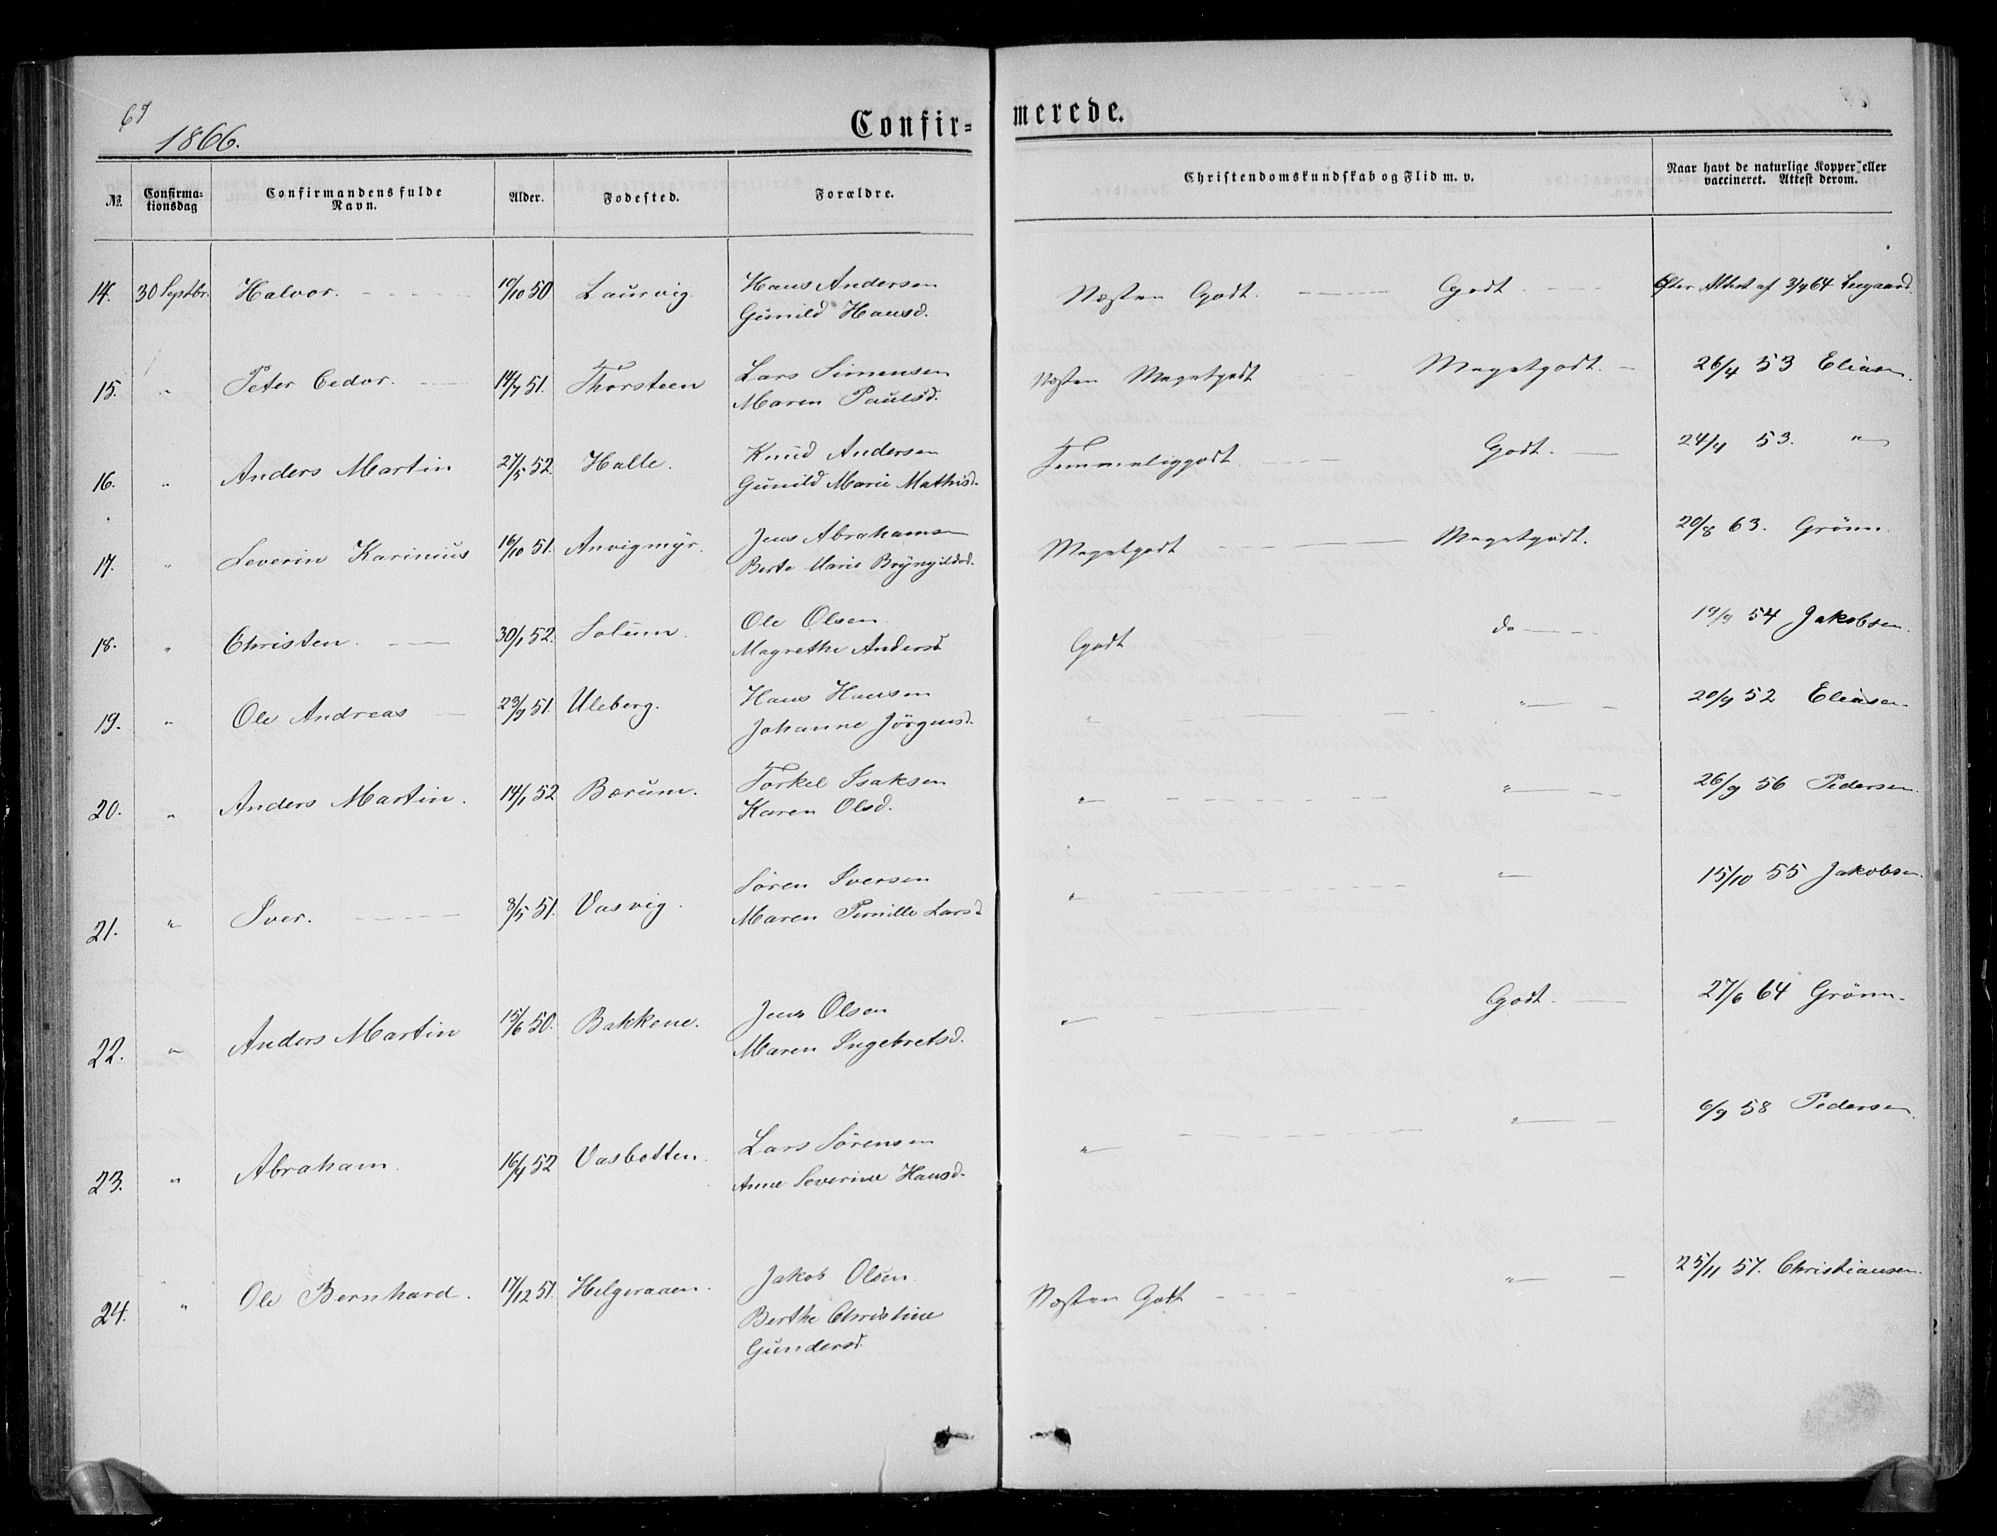 67
1866.
Confir= merede.
No. Confirma-tionsdag Confirmandens fulde Navn. Alder. Fodested. Forældre. Christendomskundskab og Flid m. v. Naar havt de naturlige Kopper eller vaccineret. Attest derom.
14. 30 Septbr. Halvor. 19/10 50 Laurvig. Hans Andersen Næsten Godt. Godt Efter Attest af 3/9 64
Gunild Hansd.
15. " Peter Cedor. 14/7 51. Thorsteen Lars Simensen Næsten Megetgodt Megetgodt. 26/4 53 Eliasen.
Maren Paulsd.
16. " Anders Martin 27/5 52. Halle. Knud Andersen Temmeliggodt. Godt. 24/4 53. "
Gunild Marie Mathisd.
17. " Severin Karinius 16/10 51. Anvigmyr. Jens Abrahamsen Megetgodt Megetgodt. 20/8 63. Grönn.
Berte Marie Bryngildsd.
18. " Christen. 30/1 52. Solum. Ole Olsen. Godt do 19/9 54 Jakobsen.
Magrethe Andersd
19. " Ole Andreas 23/9 51. Uleberg. Hans Hansen " " 20/9 52 Eliasen.
Johanne Jörgensd.
20. " Anders Martin. 14/1 52 Bærum. Torkel Isaksen " " 26/9 56 Pedersen.
Karen Olsd.
21. " Iver. 8/5 51. Vasvig. Sören Iversen " " 15/10 55 Jakobsen.
Maren Pernille Larsd
22. " Anders Martin 15/6 50. Bakkene. Jens Olsen " Godt. 27/6 64 Grönn.
Maren Ingebretsd.
23. " Abraham. 16/4 52 Vasbotten. Lars Sörensen " " 6/9 58 Pedersen.
Anne Severine Hansd.
24. " Ole Bernhard. 17/12 51. Helgeraaen. Jakob Olsen. Næsten Godt " 25/11 57. Christiansen.
Berthe Christine
Gundersd.